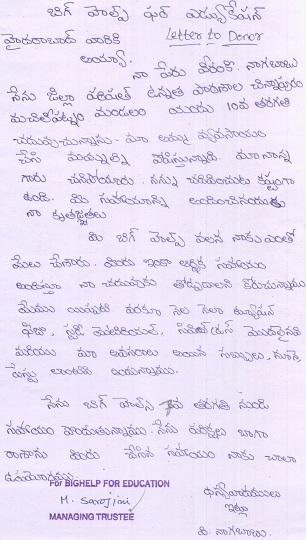 బిగ్ హెల్ప్ ఫర్ ఎడ్యుకేషన్
హైదరాబాద్ వారికి Letter to Donor
అయ్యా.
నా పేరు వీరంకి. నాగబాబు
నేను జిల్లా పరిషత్ ఉన్నత పాఠశాల చిన్నాపురం
మచిలీపట్నం మండలం యందు 10వ తరగతి
చదువుచున్నాను. మా అమ్మ వ్యవసాయం
చేసి మమ్మల్ని పోషిస్తున్నాది. మా నాన్న
గారు చనిపోయారు. నన్ను చదివించుట కష్టంగా
ఉంది. మీ సహాయాన్ని అందించినందుకు
నా కృతజ్ఞతలు
మీ బిగ్ హెల్ప్ వలన నాకు ఎంతో
మేలు చేశారు. మీరు ఇంకా ఆర్థిక సహాయం
అందిస్తూ నా చదువుకు తోడ్పడాలని కోరుచున్నాను
మేము ఇప్పటి వరకూ నెల నెలా ట్యూషన్
ఫీజు, స్టడీ మెటీరియల్,
మరియు మా అవసరాలు అయిన సబ్బులు, నూనె
పేస్టు లాంటివి
నేను బిగ్ హెల్ప్ 7వ తరగతి నుండి
సహాయం పొందుతున్నాను. నేను పరీక్షలు బాగా
రాశాను మీరు చేసిన సహాయం నాకు చాలా
ఉపయోగపడ్డాయి
For BIGHELP FOR EDUCATION
M. Sarojini
MANAGING TRUSTEE
ధన్యవాదములు
ఇట్లు
వి. నాగబాబు.